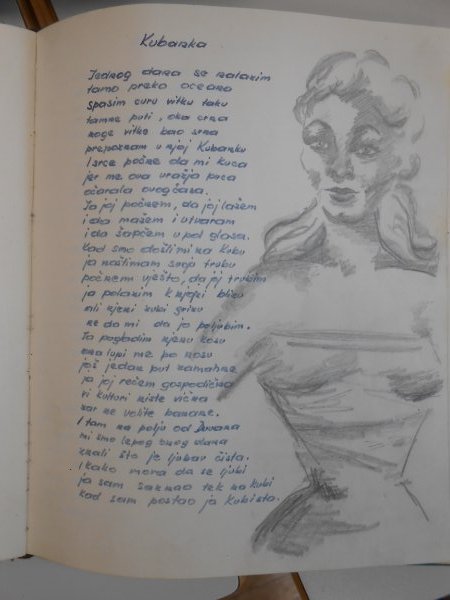 Kubanka
Jednog dana se nalazim
tamo preko oceana
spazim curu vitku taku
tamne puti, oka crna
noge vitke kao srna
prepoznam u njoj Kubanku
I srce počne da mi kuca
jer me ova urađja puca
očarala ovog časa.
Ja joj počnem, da joj lažem
i da mažem i utvaram
i da šapćem u pol glasa.
Kad smo došli mi na Kubu
ja naštimam svoju trubu
počnem vješto, da joj trubim
ja polazim k njojni blizu
ali njeni zubi grizu
ne da mi da je poljubim.
Ja pogladim njenu kosu
ona lupi me po nosu
još jedan put zamahne
ja joj rečem gospodična
vi kulturi niste vična
zar ne volite banane.
I tam na polju od Duvana
mi smo lepog onog dana
znali što je ljubav čista.
I kako mora da se ljubi
ja sam saznao tek na Kubi
kad sam postao ja Kubista.